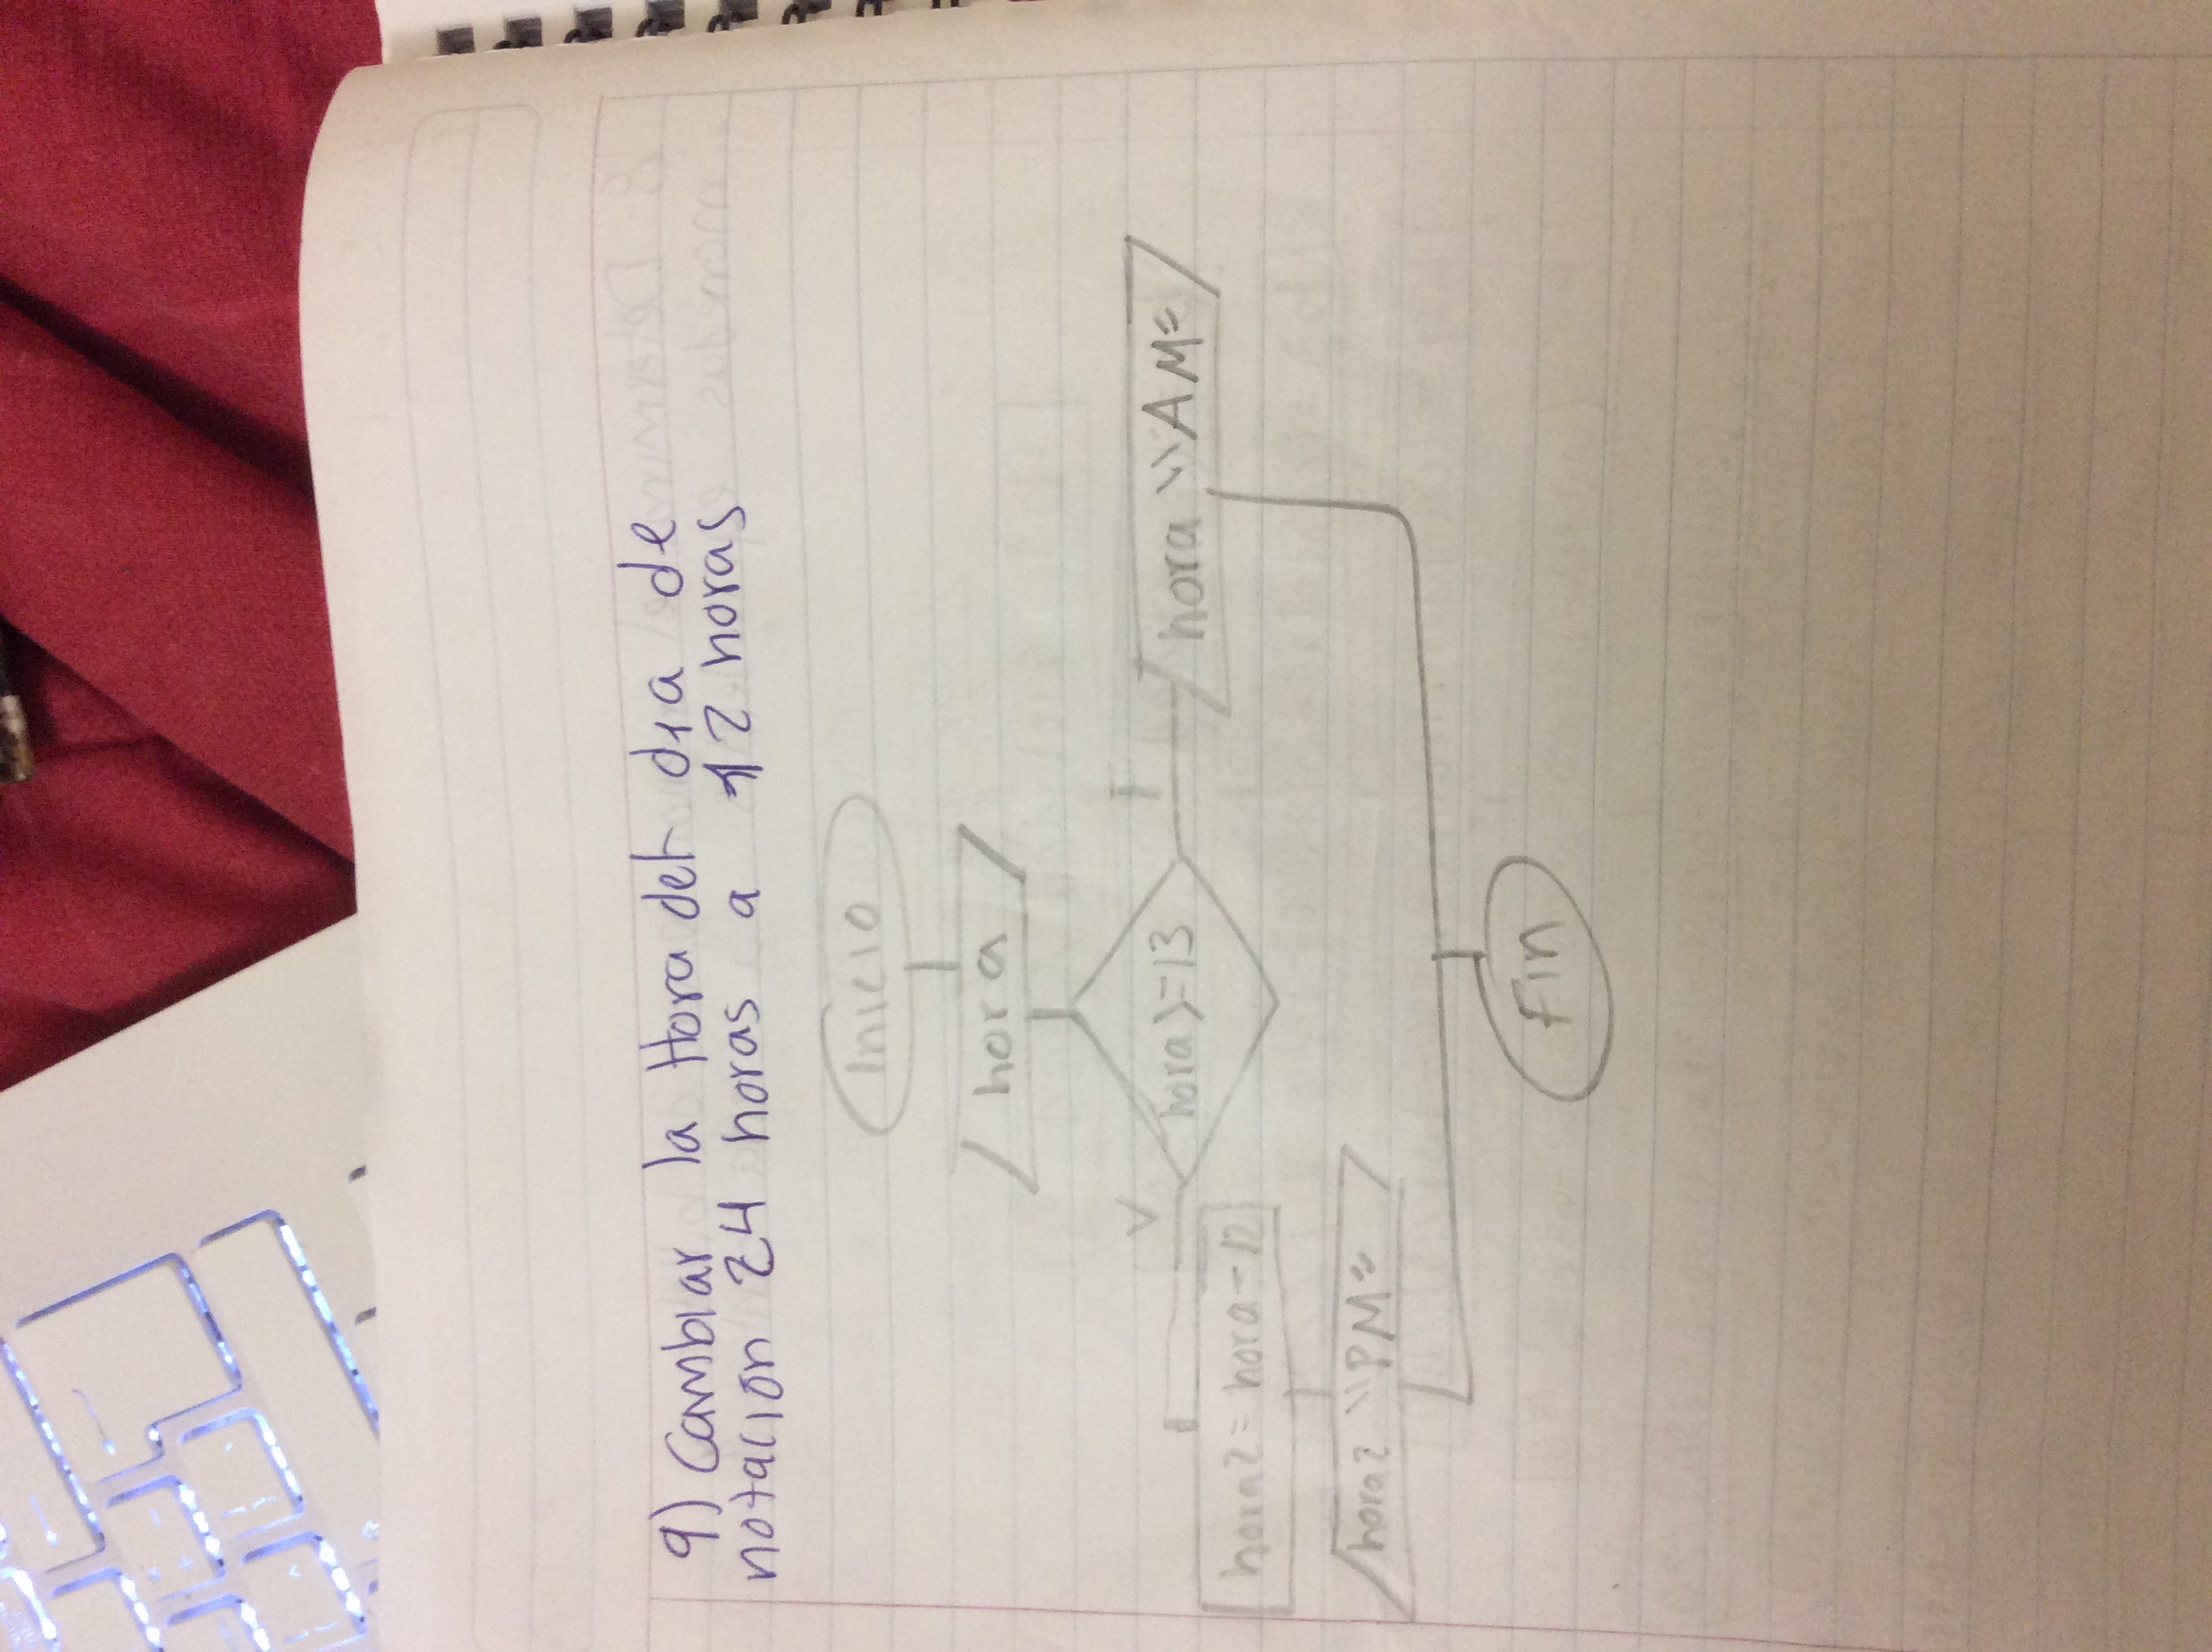 9) Cambiar la Hora del dia de
notacion 24 horas a 12 horas
Inicio
hora
hora>=13
V
F
hora2 = hora-12
hora "AM"
hora2 "PM"
Fin